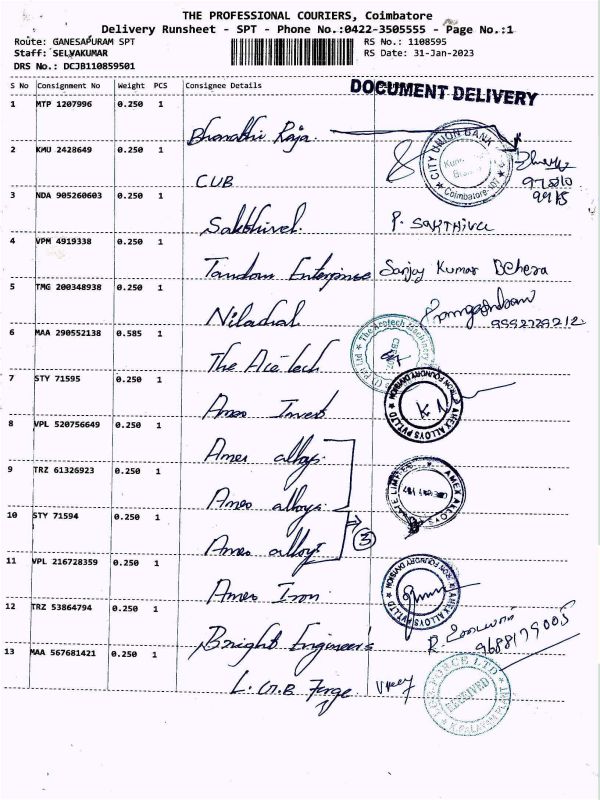 THE PROFESSIONAL COURIERS, Coimbatore
Delivery Runsheet - SPT - Phone No.:0422-3505555 - Page No.:1
Route: GANESAPURAM SPT RS No.: 1108595
Staff: SELVAKUMAR RS Date: 31-Jan-2023
DRS No.: DCJB110859501
S No Consignment No Weight PCS Consignee Details
DOCUMENT DELIVERY
1 MTP 1207996 0.250 1
Bharathi Raja
2 KMU 2428649 0.250 1
CITY UNION BANK
Coimbatore-107
CUB
3 NDA 905260603 0.250 1
Sakthivel P. SAKTHIVEL
4 VPM 4919338 0.250 1
Tandom Enterprise Sanjay Kumar Behera
5 TMG 200348938 0.250 1
Niladral
6 MAA 290552138 0.585 1
The Ace tech
7 STY 71595 0.250 1
AMEX ALLOYS PVT LTD
IRON FOUNDRY DIVISION
Amex Invest
8 VPL 520756649 0.250 1
Amex alloys
9 TRZ 61326923 0.250 1
AMEX ALLOYS
Amex alloys
10 STY 71594 0.250 1
3
Amex alloys
11 VPL 216728359 0.250 1
AMEX ALLOYS PVT LTD
IRON FOUNDRY DIVISION
Amex Iron
12 TRZ 53864794 0.250 1
Bright Engineer's
9688179005
13 MAA 567681421 0.250 1
L.G.B Forge
RECEIVED